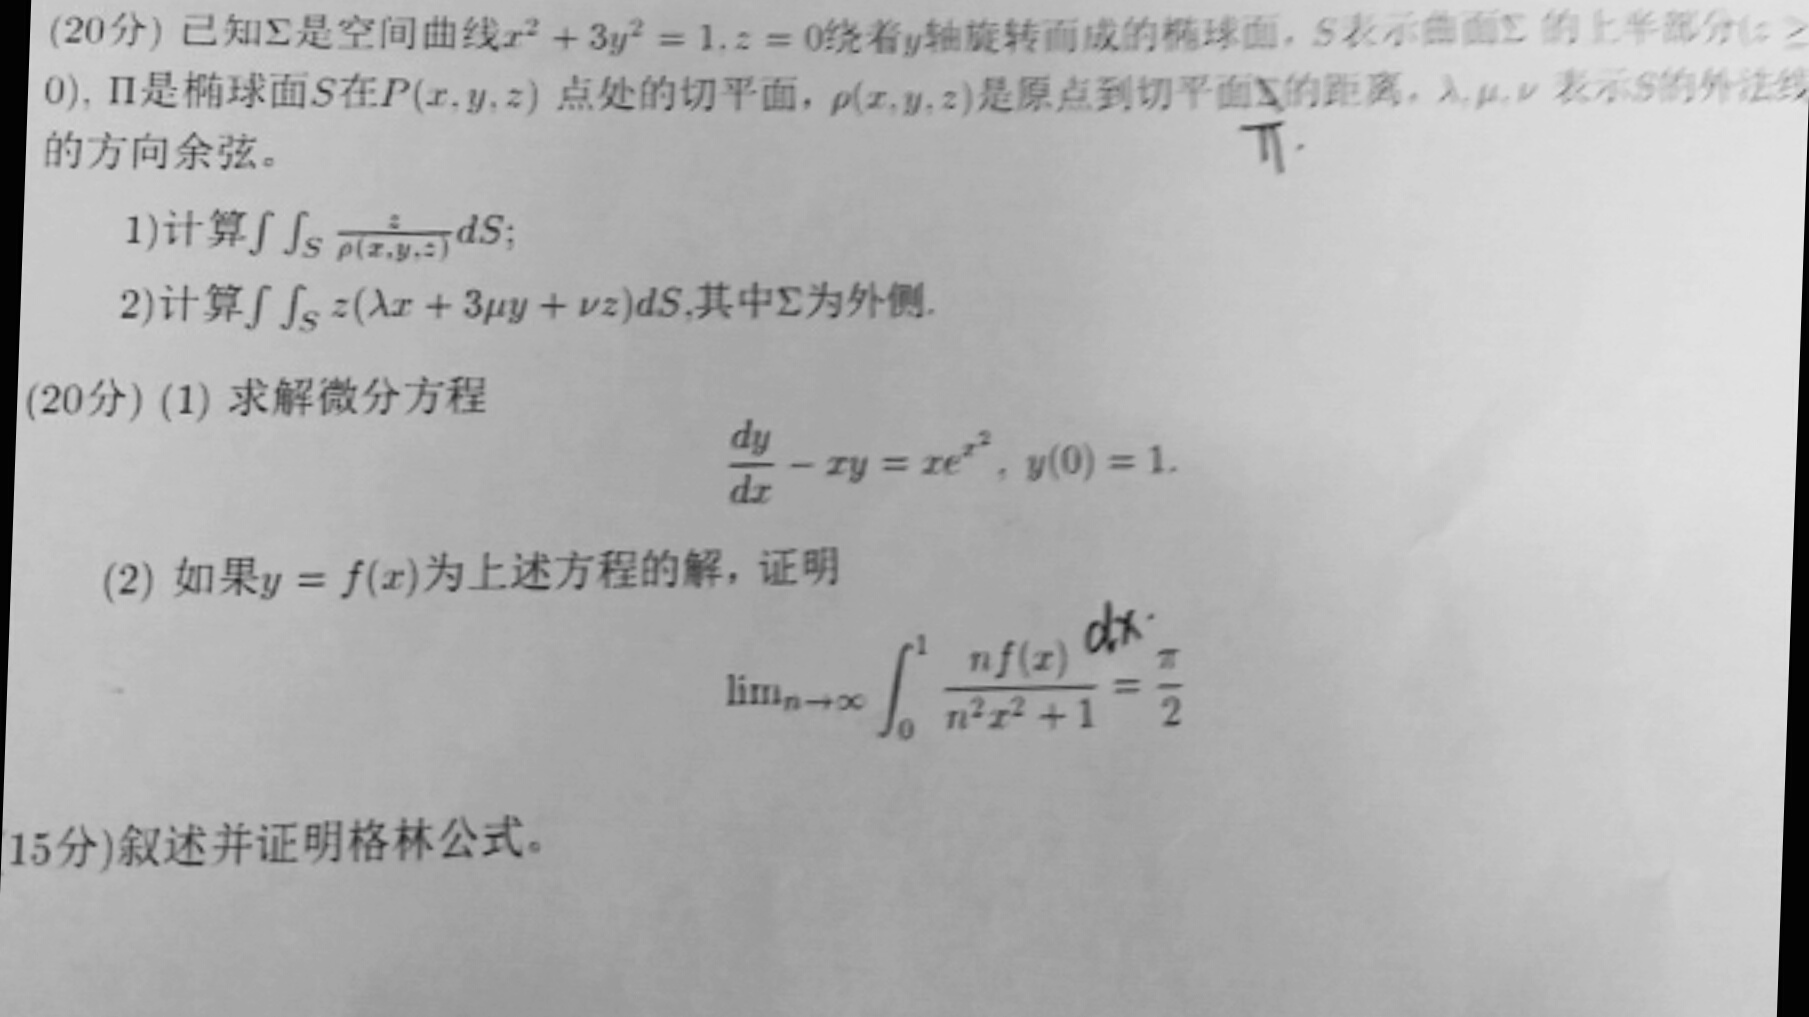 (20分) 已知Σ是空间曲线x² + 3y² = 1, z = 0绕着y轴旋转而成的椭球面，S表示曲面Σ 的上半部分(z ≥
0), Π是椭球面S在P(x, y, z) 点处的切平面，ρ(x, y, z)是原点到切平面Σ的距离，λ, μ, ν 表示S的外法线
π.
的方向余弦。
1)计算∫∫_S z/ρ(x,y,z) dS;
2)计算∫∫_S z(λx + 3μy + νz)dS,其中Σ为外侧.
(20分) (1) 求解微分方程
dy/dx − xy = xe^{x²}, y(0) = 1.
(2) 如果y = f(x)为上述方程的解，证明
lim_{n→∞} ∫_0^1 nf(x)/(n²x² + 1) dx = π/2
15分)叙述并证明格林公式。